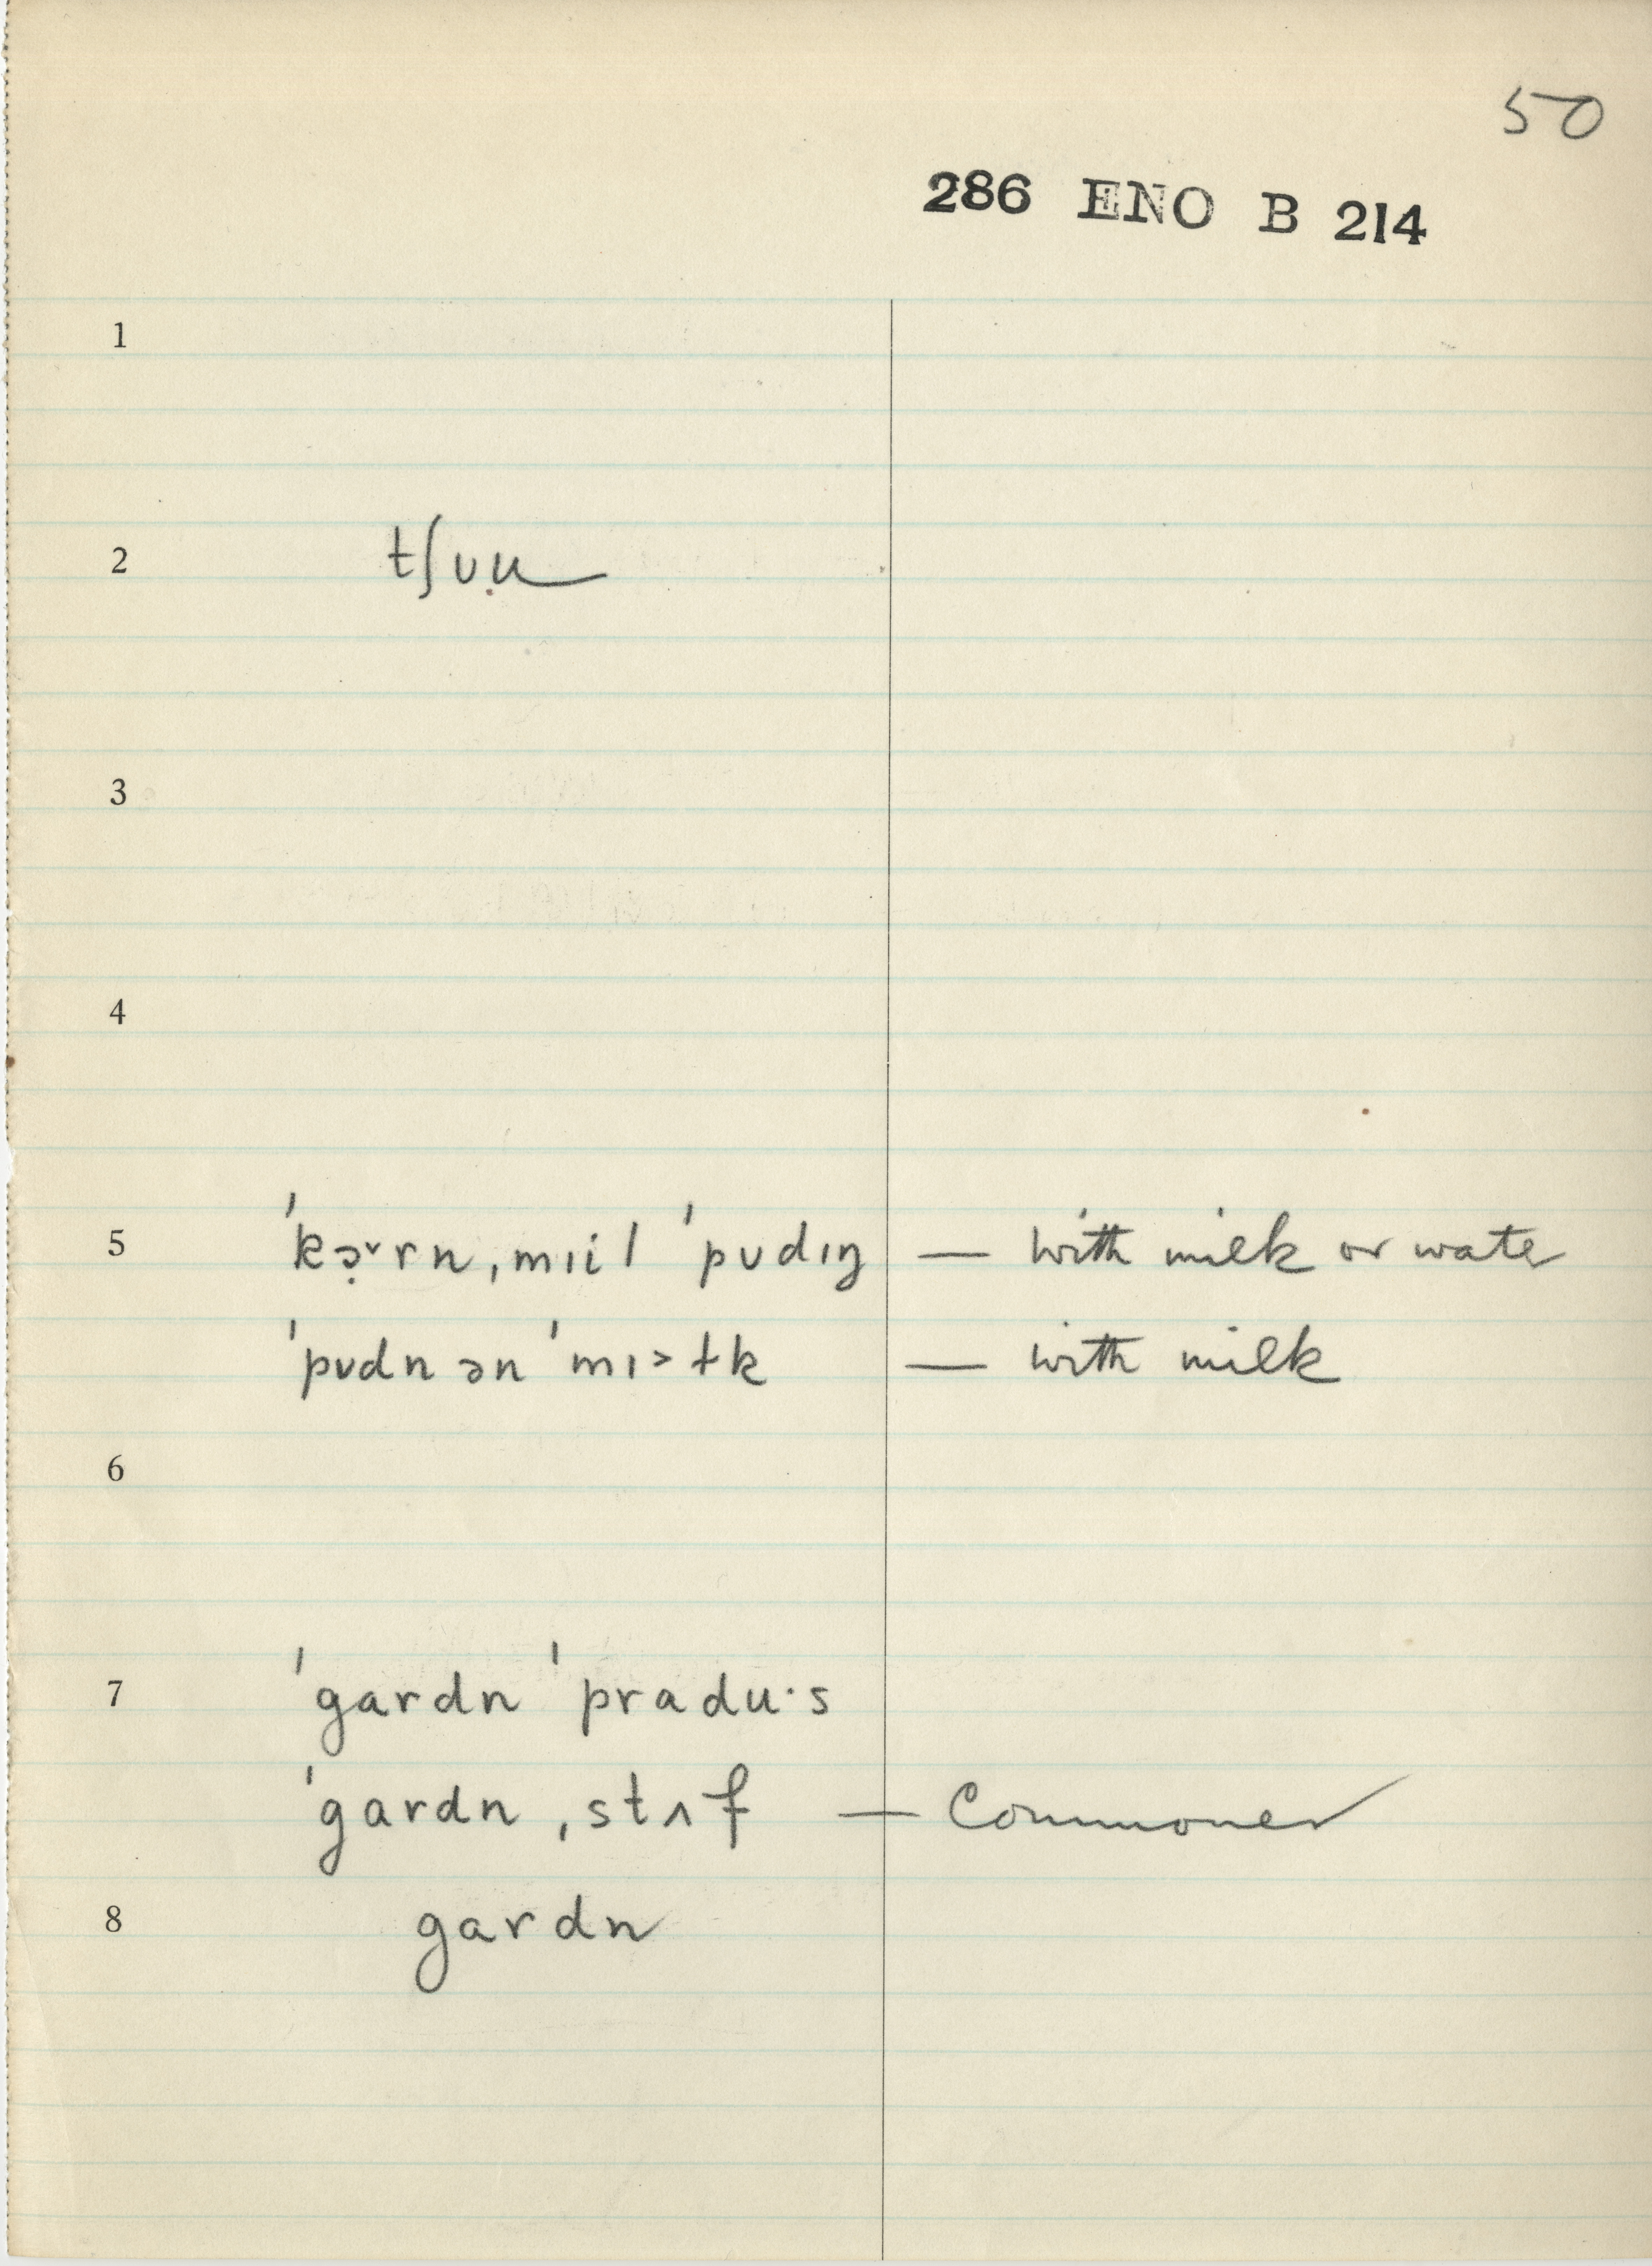 50
286 ENO B 214
1
2 tʃʊ̣u
3
4
5 ˈkə̣˅rn ˌmɪil ˈpʊdɪŋ — with milk or water
ˈpʊdn ən ˈmɪ˃ɫk — with milk
6
7 ˈgardn ˈpradu·s
ˈgardn ˌstʌf — Commoner
8 gardn